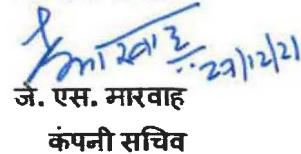 27/12/21
जे. एस. मारवाह
कंपनी सचिव